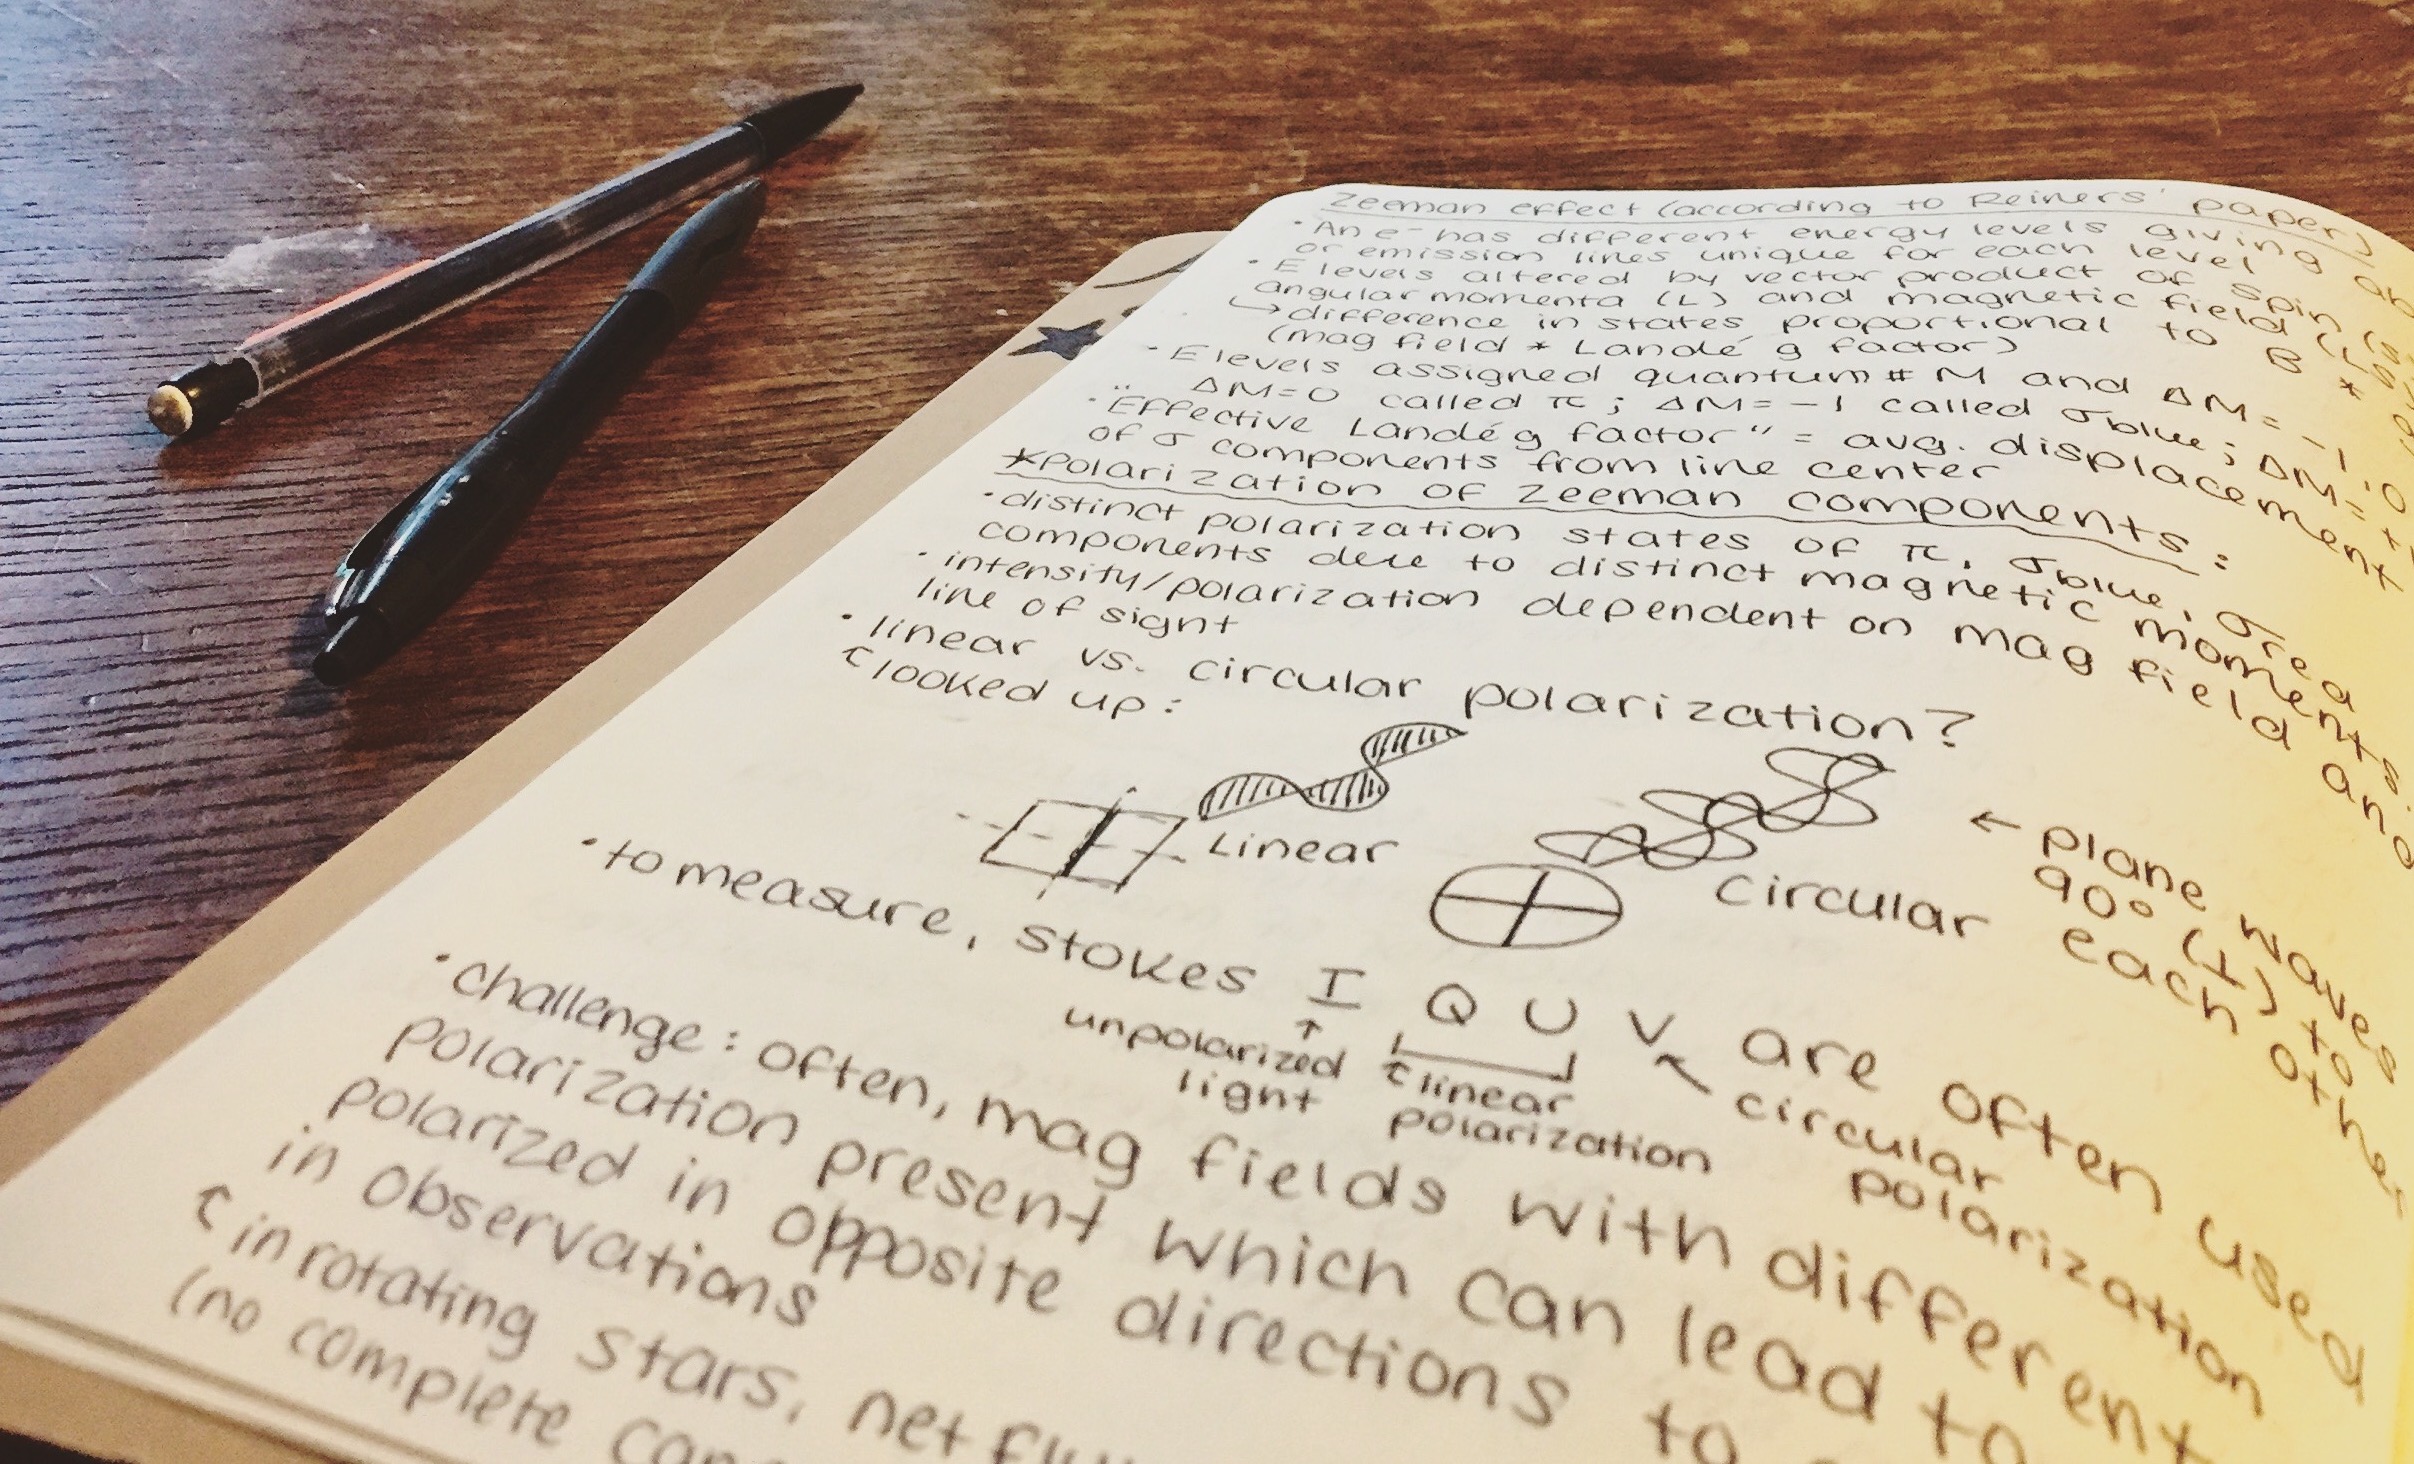 Zeeman effect (according to Reiners' paper)
· An e⁻ has different energy levels giving ab
or emission lines unique for each level
· E levels altered by vector product of spin (S
angular momenta (L) and magnetic field
↳ difference in states proportional to B *
(mag field * Landé g factor)
· E levels assigned quantum # M and ΔM = -1, 0
ΔM=0 called π; ΔM=-1 called σblue; ΔM= +
· "Effective Landé g factor" = avg. displacement
of σ components from line center
*Polarization of Zeeman components:
· distinct polarization states of π, σblue, σred
components due to distinct magnetic moments.
· intensity/polarization dependent on mag field and
line of sight
· linear vs. circular polarization?
looked up:
Linear
circular
← plane waves
90° (⊥) to
each other
· to measure, Stokes I Q U V are often used
↑ unpolarized light
linear polarization
circular polarization
· challenge: often, mag fields with different
polarization present which can lead to
polarized in opposite directions to
in observations
in rotating stars, net
(no complete